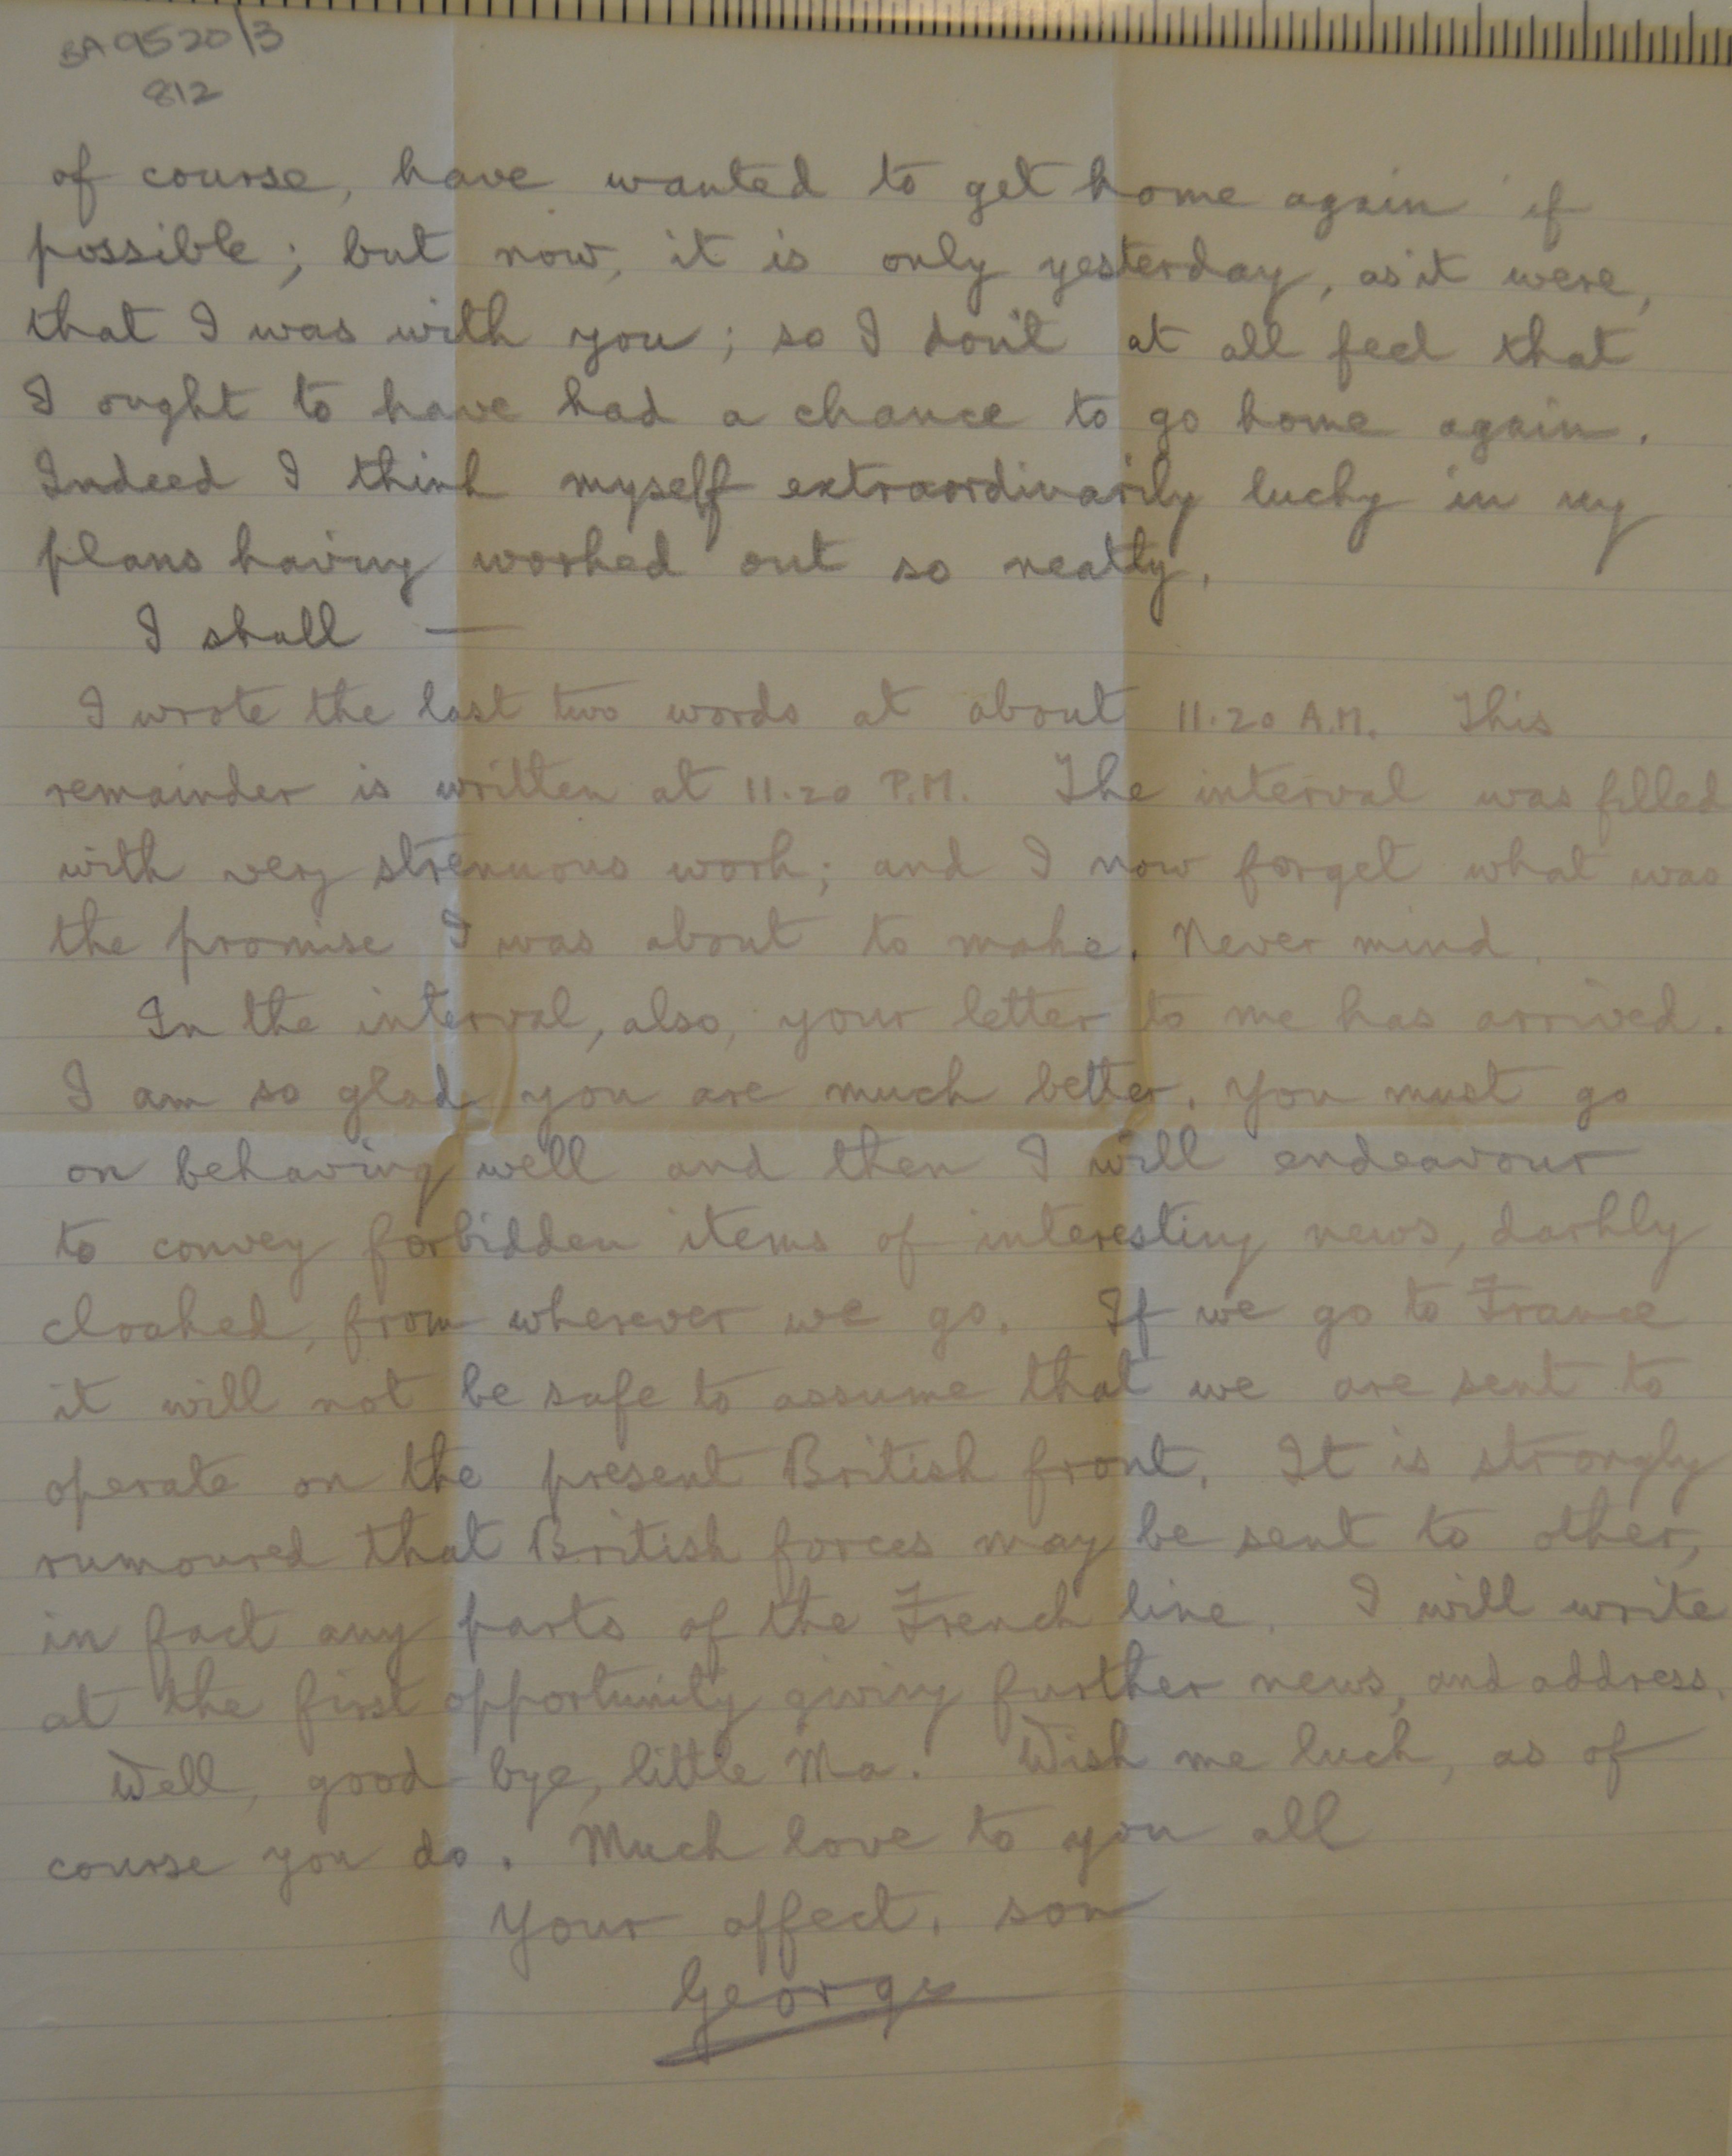 BA 9520/3
812
of course, have wanted to get home again if
possible; but now, it is only yesterday, as it were,
that I was with you; so I don't at all feel that
I ought to have had a chance to go home again.
Indeed I think myself extraordinarily lucky in my
plans having worked out so neatly.
I shall —
I wrote the last two words at about 11.20 A.M. This
remainder is written at 11.20 P.M. The interval was filled
with very strenuous work; and I now forget what was
the promise I was about to make. Never mind.
In the interval, also, your letter to me has arrived.
I am so glad you are much better. You must go
on behaving well and then I will endeavour
to convey forbidden items of interesting news, darkly
cloaked, from wherever we go. If we go to France
it will not be safe to assume that we are sent to
operate on the present British front. It is strongly
rumoured that British forces may be sent to other,
in fact any parts of the French line. I will write
at the first opportunity giving further news, and address.
Well, good bye, little Ma. Wish me luck, as of
course you do. Much love to you all
Your affect. son
George